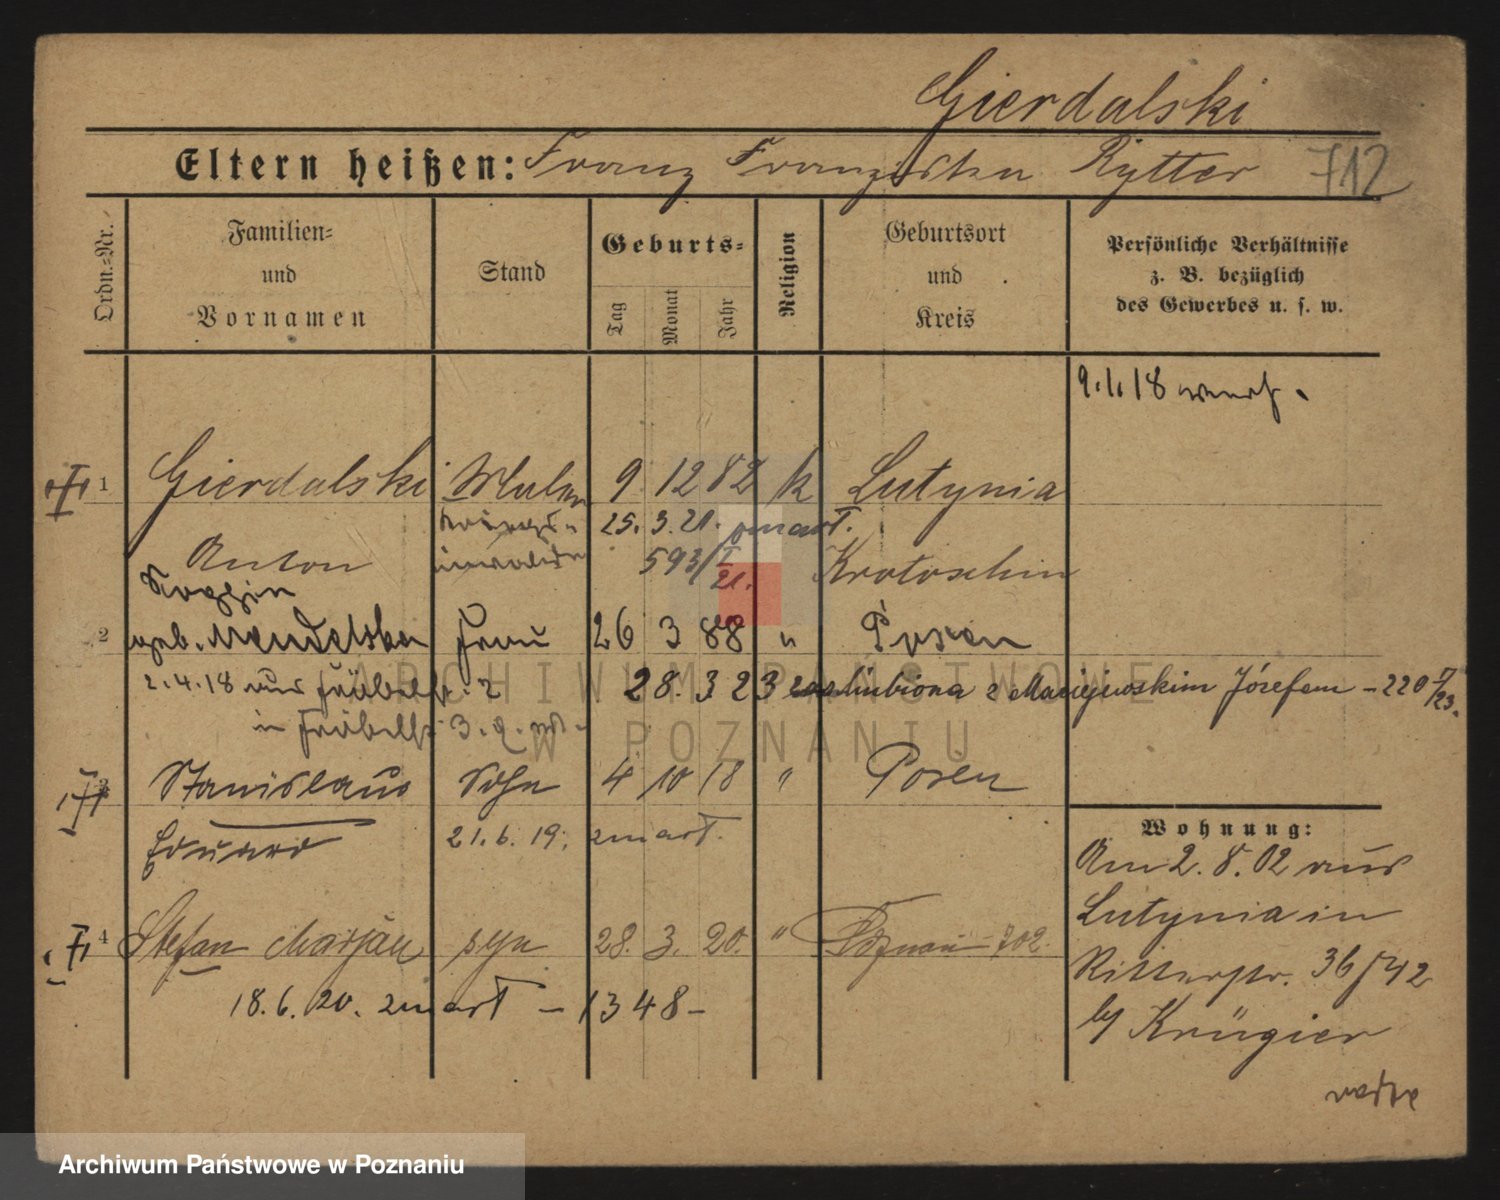 Gierdalski
Eltern heißen: Franz Franziska Rytter 712
Ordn.=Nr.
Familien=
und
Vornamen
Stand
Geburts=
Tag
Monat
Jahr
Religion
Geburtsort
und
Kreis
Persönliche Verhältnisse
z. B. bezüglich
des Gewerbes u. s. w.
9.1.18
1 Gierdalski Maler 9 12 82 k Lutynia
25. 3. 21. zmart.
Anton 593/I 21. Krotoschin
Sophia
2 geb. Mendelska Frau 26 3 88 " Posen
2.4.18 aus
28. 3 23 zaślubiona z Maciejewskim Józefem - 220 I/23.
in
3 Stanislaus Sohn 4 10 18 " Posen
Eduard 21. 6. 19. zmart.
Wohnung:
Am 2. 8. 02 aus
Lutynia in
Ritterstr. 36/42
by Krügier
4 Stefan Marjan syn 28. 3. 20. " Poznań 702.
18. 6. 20. zmart - 1348 -
ARCHIWUM PAŃSTWOWE
W POZNANIU
Archiwum Państwowe w Poznaniu